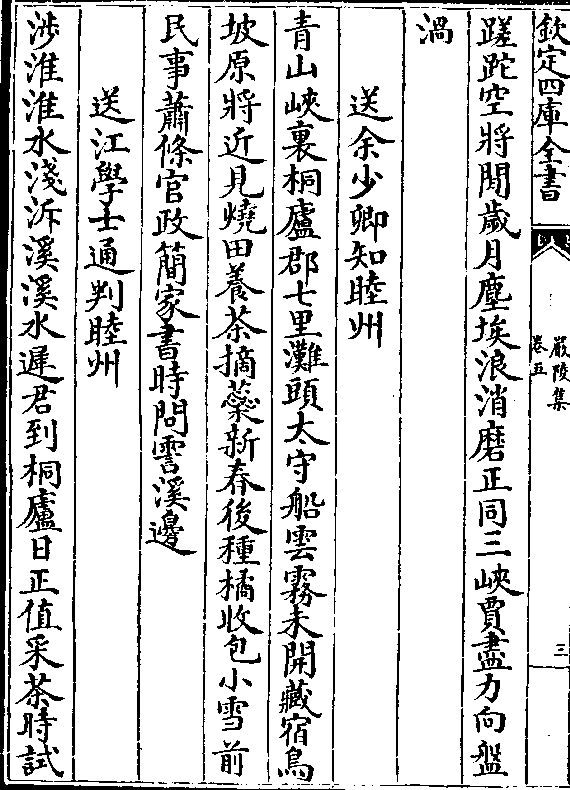 欽定四庫全書
嚴陵集
卷五
三
蹉跎空將閒歲月塵埃浪消磨正同三峽賈盡力向盤
渦
送余少卿知睦州
青山峽裏桐廬郡七里灘頭太守船雲霧未開藏宿鳥
坡原將近見燒田養茶摘蘂新春後種橘收包小雪前
民事蕭條官政簡家書時問霅溪邊
送江學士通判睦州
渉淮淮水淺泝溪溪水遲君到桐廬日正值采茶時試